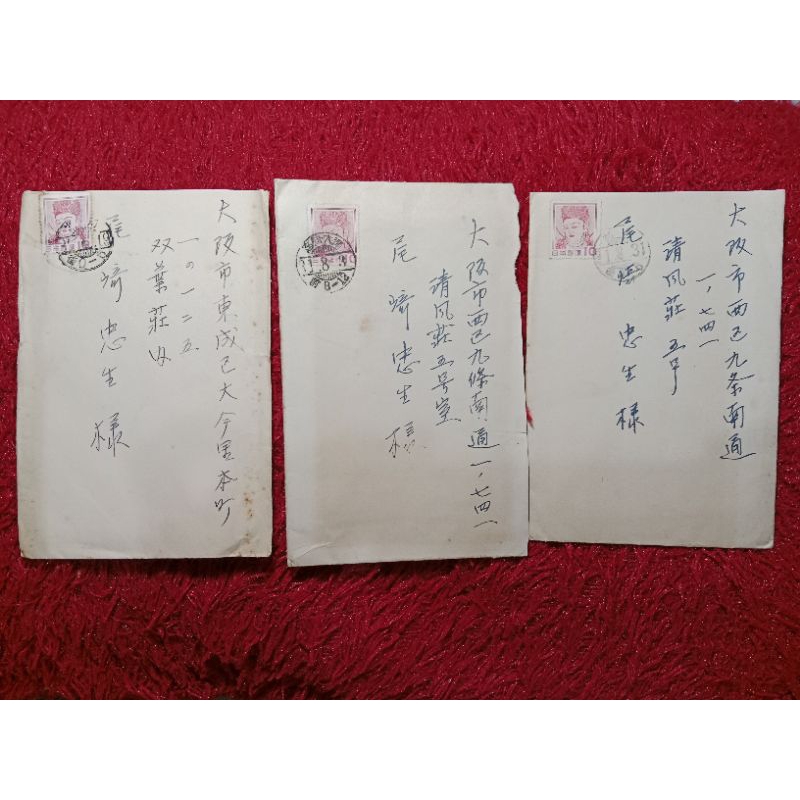 大阪市東成区大今里本町
一の一二五
双葉莊内
尾崎忠生様
大阪市西区九條南通一ノ七四一
清風莊五号室
尾崎忠生様
8
大阪市西区九条南通
一ノ七四一
清風莊五号
尾崎忠生様
日本郵便 10